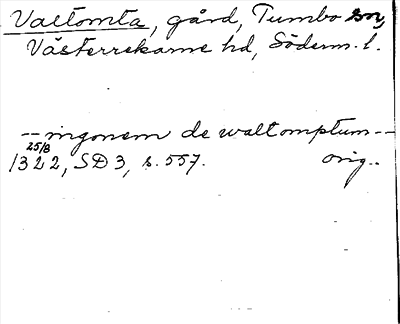 Valtomta, gård, Tumbo sn,
Västerrekarne hd, Söderm. l.
-- ingonem de waltomptum --
25/8
1322, SD 3, s. 557. orig.